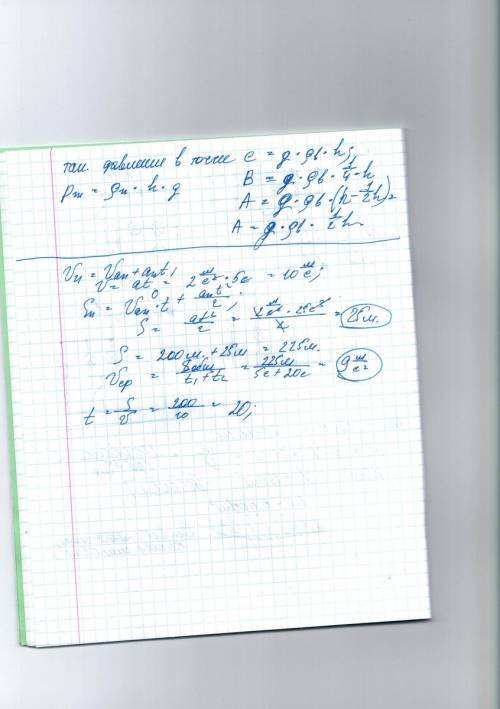 давление в точке C = g·ρв·h;
Pт = ρт·h·g
B = g·ρв·1/4·h
A = g·ρв·(h-1/2h)=
A = g·ρв·1/2h
Vп = Vоп + aпt;
V = at = 2 м/с²·5с = 10 м/с;
Sп = Vоп⁰·t + aпt²/2;
S = at²/2 = 2 м/с²·25с²/2 = 25м.
S = 200м + 25м = 225м.
Vср = Sобщ/t₁+t₂ = 225м/5с+20с = 9 м/с²
t = S/V = 200/10 = 20;